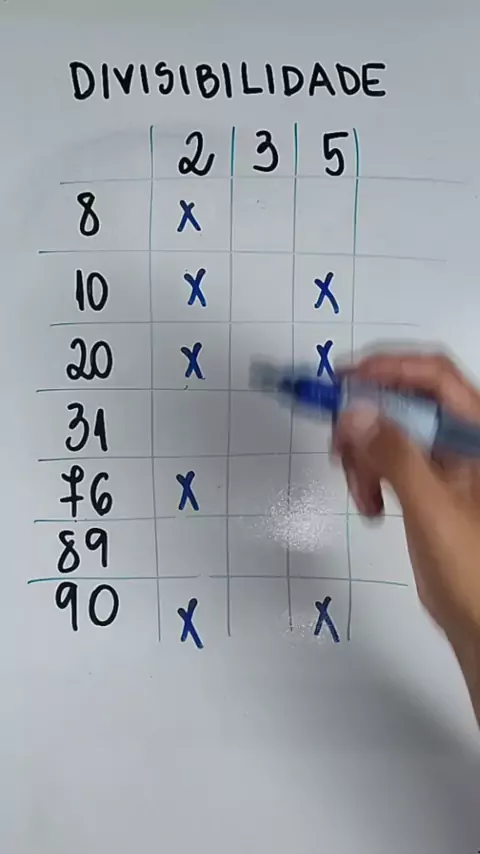 DIVISIBILIDADE
2 3 5
8 X
10 X X
20 X X
31
76 X
89
90 X X